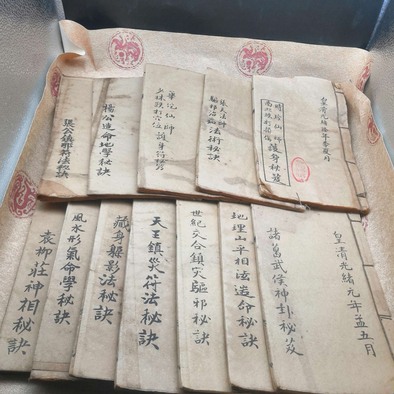 皇清光绪拾年季夏月
護身秘笈
張天法師
驅邪治病法術秘訣
華佗仙師
楊公造命地學秘訣
張公鎮邪符法秘訣
皇清光绪元年孟五月
諸葛武侯神卦秘笈
地理山平相法造命秘訣
世紀交合鎮灾驅邪秘訣
天王鎮災符法秘訣
藏身躲影法秘訣
風水形氣命學秘訣
袁柳莊神相秘訣